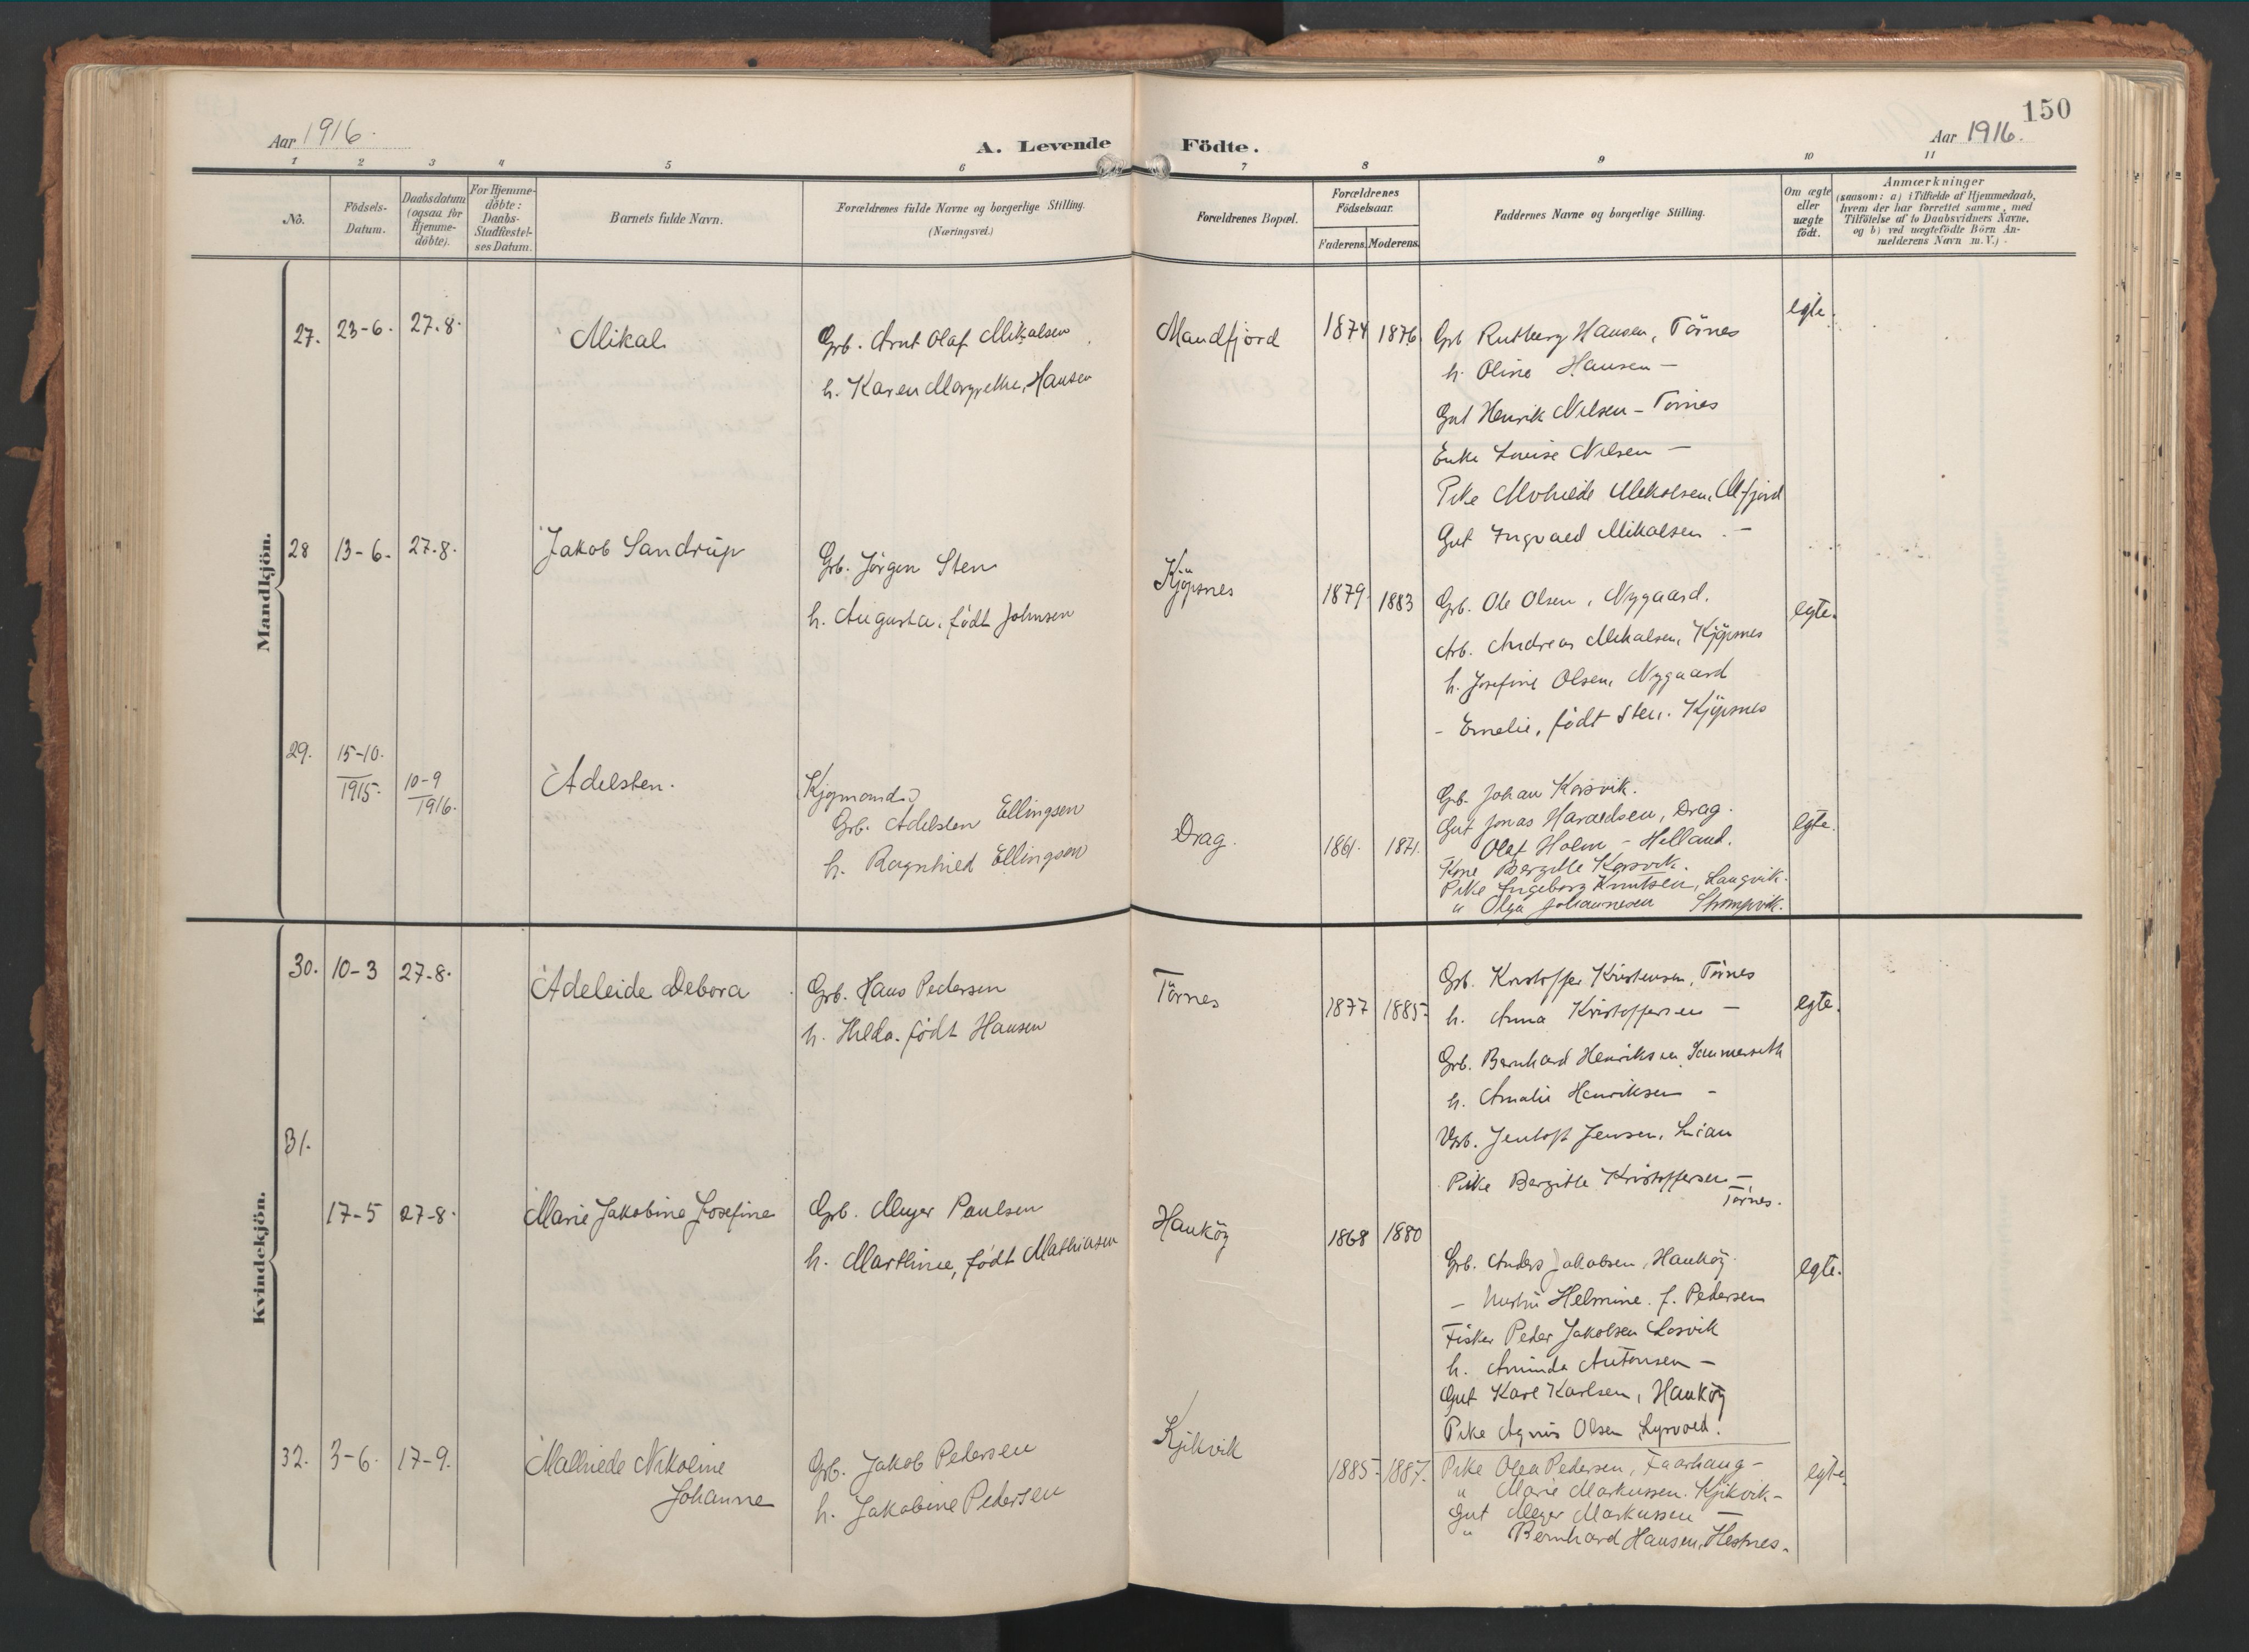 150
Aar 1916.
A. Levende Födte.
Aar 1916.
1 2 3 4 5 6 7 8 9 10 11
No.
Födsels-
Datum.
Daabsdatum
(ogsaa for
Hjemme-
döbte).
For Hjemme-
döbte:
Daabs-
Stadfæstel-
ses Datum.
Barnets fulde Navn.
Forældrenes fulde Navne og borgerlige Stilling.
(Næringsvei.)
Forældrenes Bopæl.
Forældrenes
Födselsaar.
Faderens. Moderens.
Faddernes Navne og borgerlige Stilling.
Om ægte
eller
uægte
födt.
Anmærkninger
(saasom: a) i Tilfælde af Hjemmedaab,
hvem der har forrettet samme, med
Tilföielse af to Daabsvidners Navne,
og b) ved uægtefödte Börn An-
melderens Navn m. V.)
Mandkjön.
27. 23-6. 27.8. Mikal
Grb. Arnt Olaf Mikalsen
h. Karen Margrethe, Hansen
Mandfjord 1874 1876.
Grb Rutberg Hansen, Törnes
h. Oline Hansen —
Gut Henrik Nilsen - Törnes
Enke Lovise Nilsen —
Pike Mikalsen, M-fjord
Gut Ingvald Mikalsen —
egte.
28 13-6. 27.8. Jakob Sandrup
Grb. Jörgen Sten
h. Augusta, födt Johnsen
Kjöpsnes 1879. 1883
Grb. Ole Olsen, Nygaard.
Arb. Andreas Mikalsen, Kjöpsnes
h. Josefine Olsen, Nygaard
- Emelie, födt Sten. Kjöpsnes
egte.
29. 15-10. 1915. 10-9 1916. Adelsten.
Grb. Adelsten Ellingsen
h. Ragnhild Ellingsen
Drag. 1861. 1871.
Grb. Johan Korsvik.
Gut Jonas Haraldsen, Drag.
Olaf Holm - Helland.
Kone Bergitte Korsvik.
Pike Ingeborg Knutsen, Langvik.
" Olga Johannesen
egte.
Kvindekjön.
30. 10-3 27-8. Adeleide Debora
Grb. Hans Pedersen
h. Hilda. födt Hansen
Törnes 1877 1885.
Grb. Kristoffer Kristensen, Törnes
h. Anna Kristoffersen —
Grb. Bernhard Henriksen Sommerseth
h. Amalie Henriksen -
Jentoft Jensen,
Pike Bergitte Kristoffersen —
Törnes.
egte.
31. 17-5 27-8. Marie Jakobine Josefine
Grb. Meyer Paulsen
h. Marthine, födt Mathiasen
Hauköy 1868 1880
Grb. Anders Jakobsen, Hauköy.
- Hustru Helmine. f. Pedersen
Fisker Peder Jakobsen Losvik
h. Aminda Antonsen —
Gut Karl Karlsen, Hauköy
Pike Agnes Olsen
egte.
32. 3-6. 17-9. Malhilde Nikoline
Johanne
Grb. Jakob Pedersen
h. Jakobine Pedersen
Kjikvik 1885. 1887.
Pike Olea Pedersen, Faarhaug -
" Marie Markussen. Kjikvik -
Gut Meyer Markussen —
" Bernhard Hansen, Hestnes.
egte.